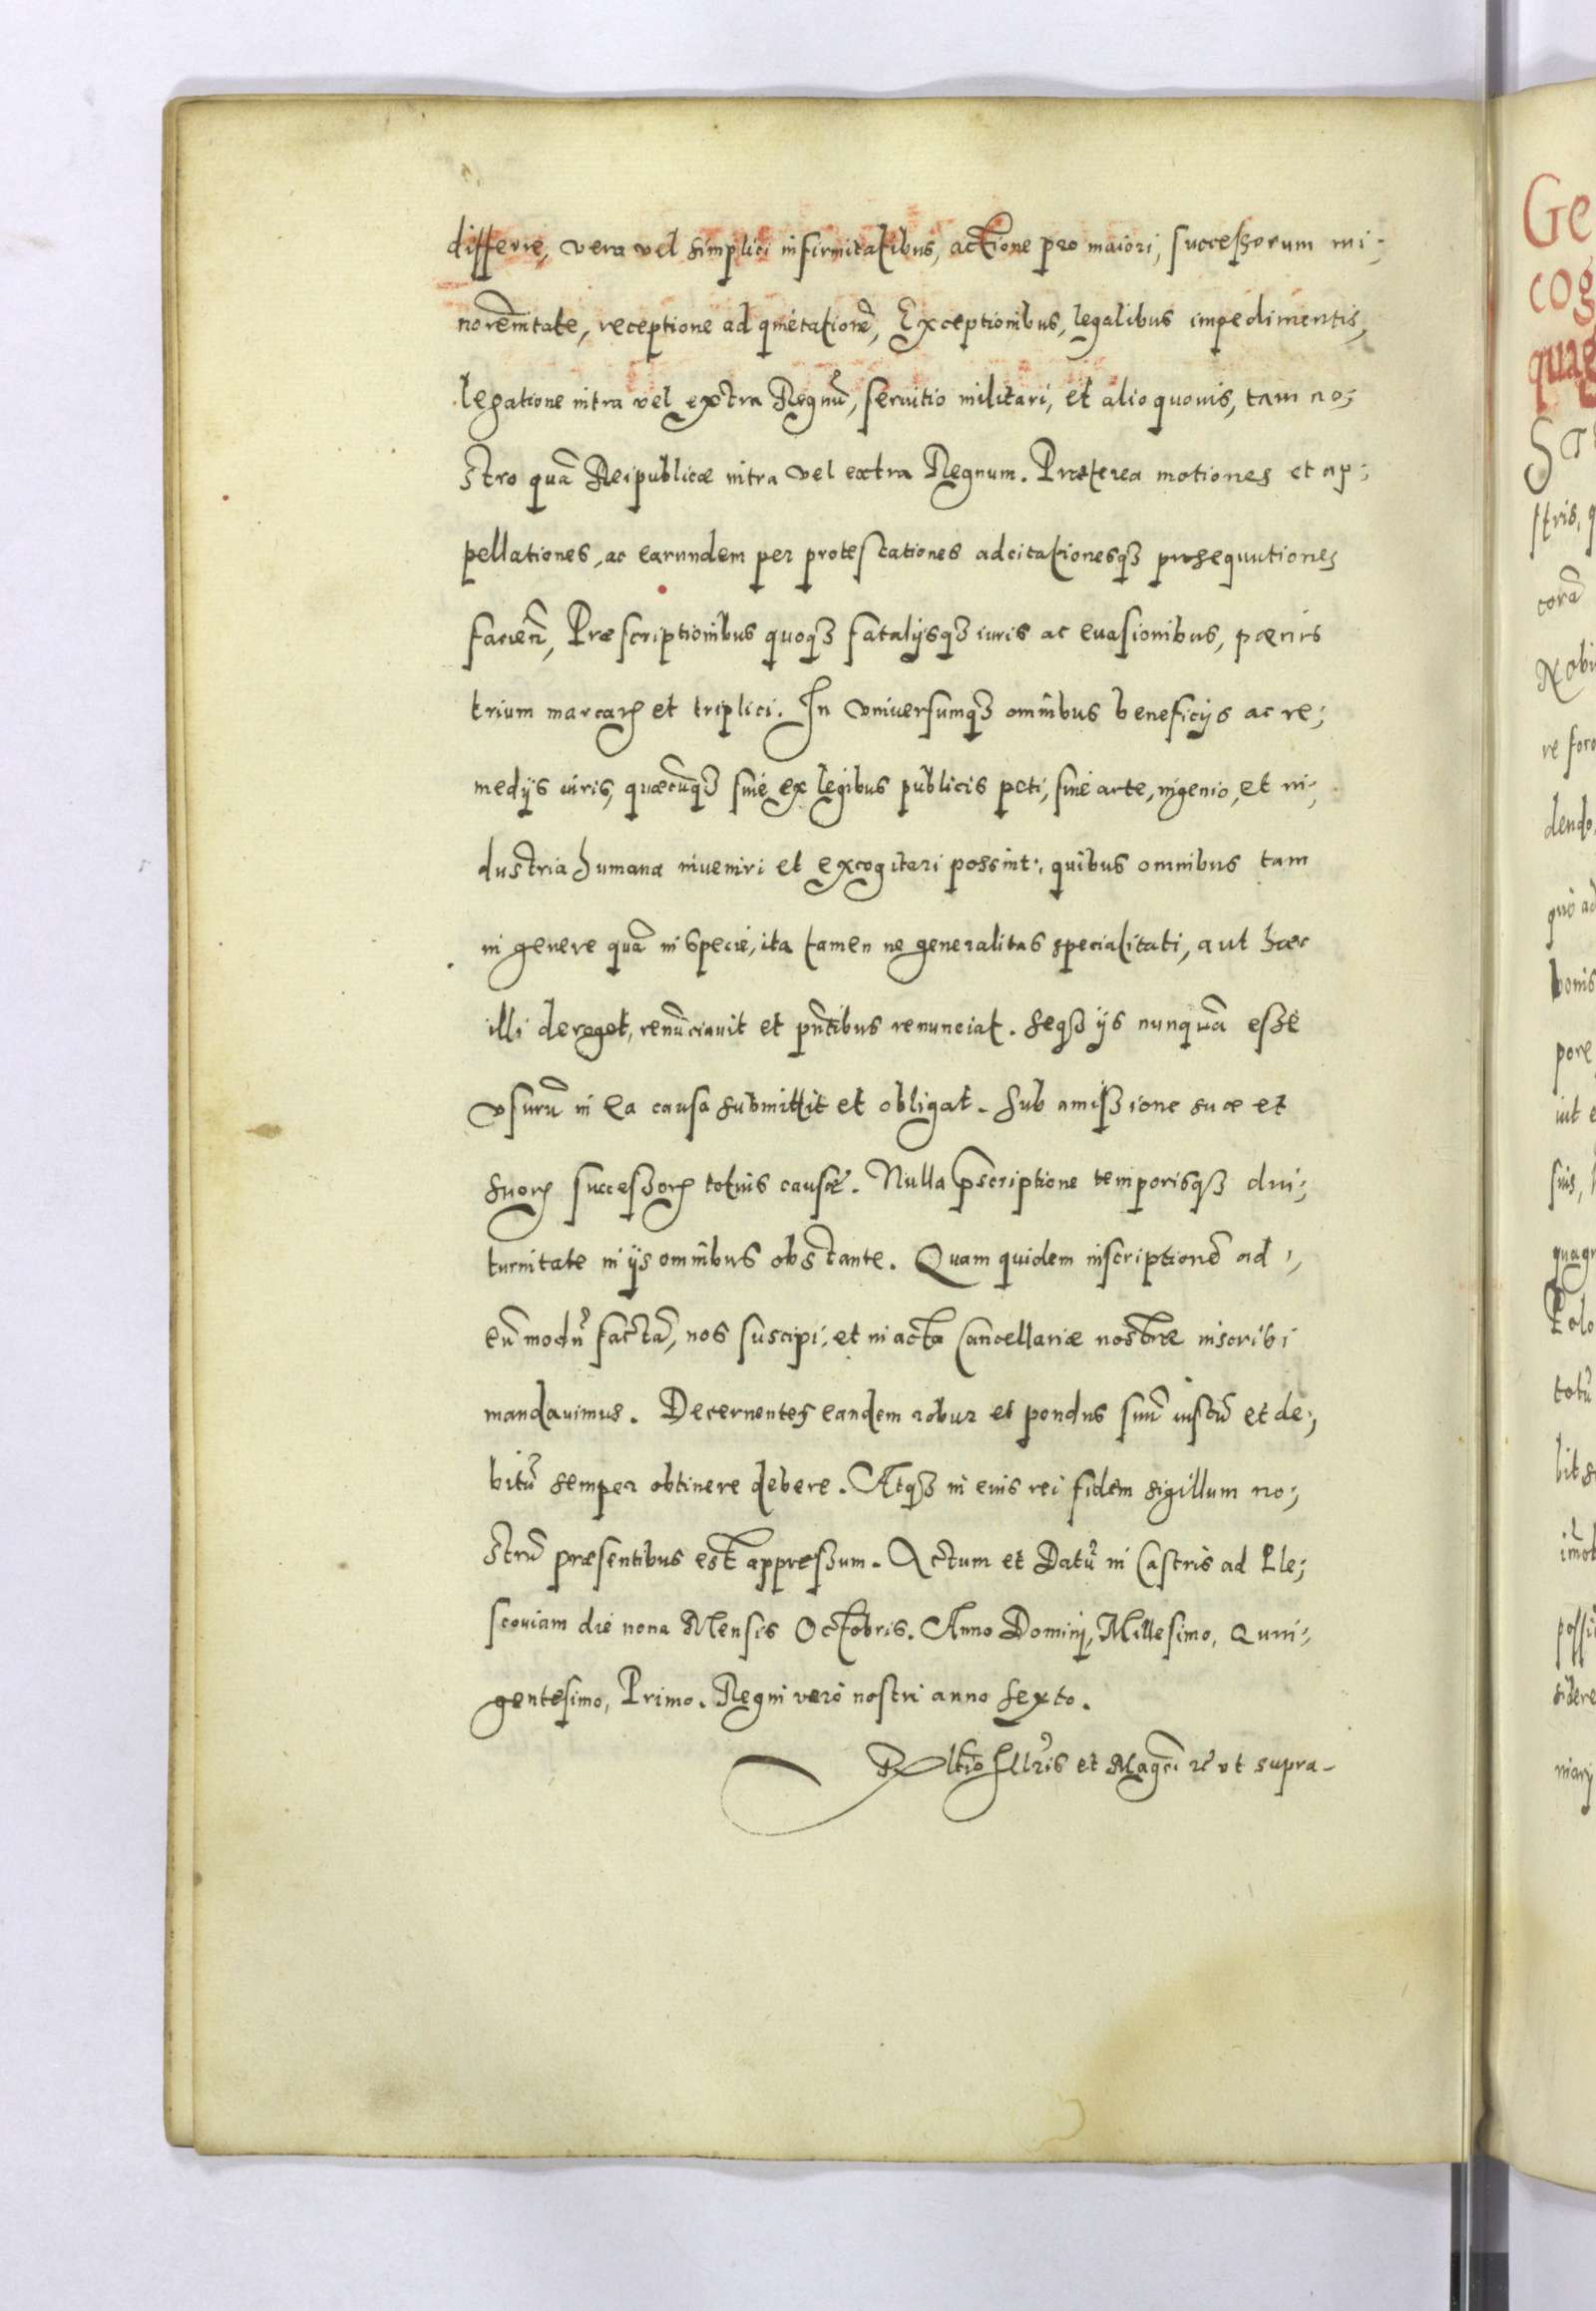 differre, vera vel simplici infirmitatibus, actione pro maiori, successorum mi-
norēnitate, receptione ad quietationē, Exceptionibus, legalibus impedimentis,
legatione intra vel extra Regnū, seruitio militari, et alio quouis, tam no-
stro quā Reipublicæ intra vel extra Regnum. Præterea motiones et ap-
pellationes, ac earundem per protestationes adcitationesqȝ prosequutiones
facien̄, Præscriptionibus quoqȝ fatalijsqȝ iuris ac euasionibus, pœnis
trium marcarꝝ et triplici. In vniuersumqȝ omnibus beneficijs ac re-
medijs iuris, quæcūqȝ siue ex legibus publicis peti, siue arte, ingenio, et in-
dustria humana inueniri et excogitari possint: quibus omnibus tam
in genere quā in specie, ita tamen ne generalitas specialitati, aut hæc
illi deroget, renūciauit et pn̄tibus renunciat. seqȝ ijs nunquā esse
vsurū in ea causa submittit et obligat. Sub amissione suæ et
suorꝝ successorꝝ totius causæ. Nulla p̄scriptione temporisqȝ diu-
turnitate in ijs omnibus obstante. Quam quidem inscriptionē ad
eū modū factā, nos suscipi, et in acta Cancellariæ nostræ inscribi
mandauimus. Decernentes eandem robur et pondus suū iustū et de-
bitū semper obtinere debere. Atqȝ in eius rei fidem sigillum no-
strū præsentibus est appressum. Actum et Datū in Castris ad Ple-
scouiam die nona Mensis Octobris. Anno Domini, Millesimo, Quin-
gentesimo, Primo. Regni vero nostri anno sexto.
Rltio Illris et Magci rc vt supra-
Ge
cog
quæ
stris, q
corā
Nobi
re foro
dendo,
bonis
pore
suis,
Polo
totū
bit s
possi
sidere